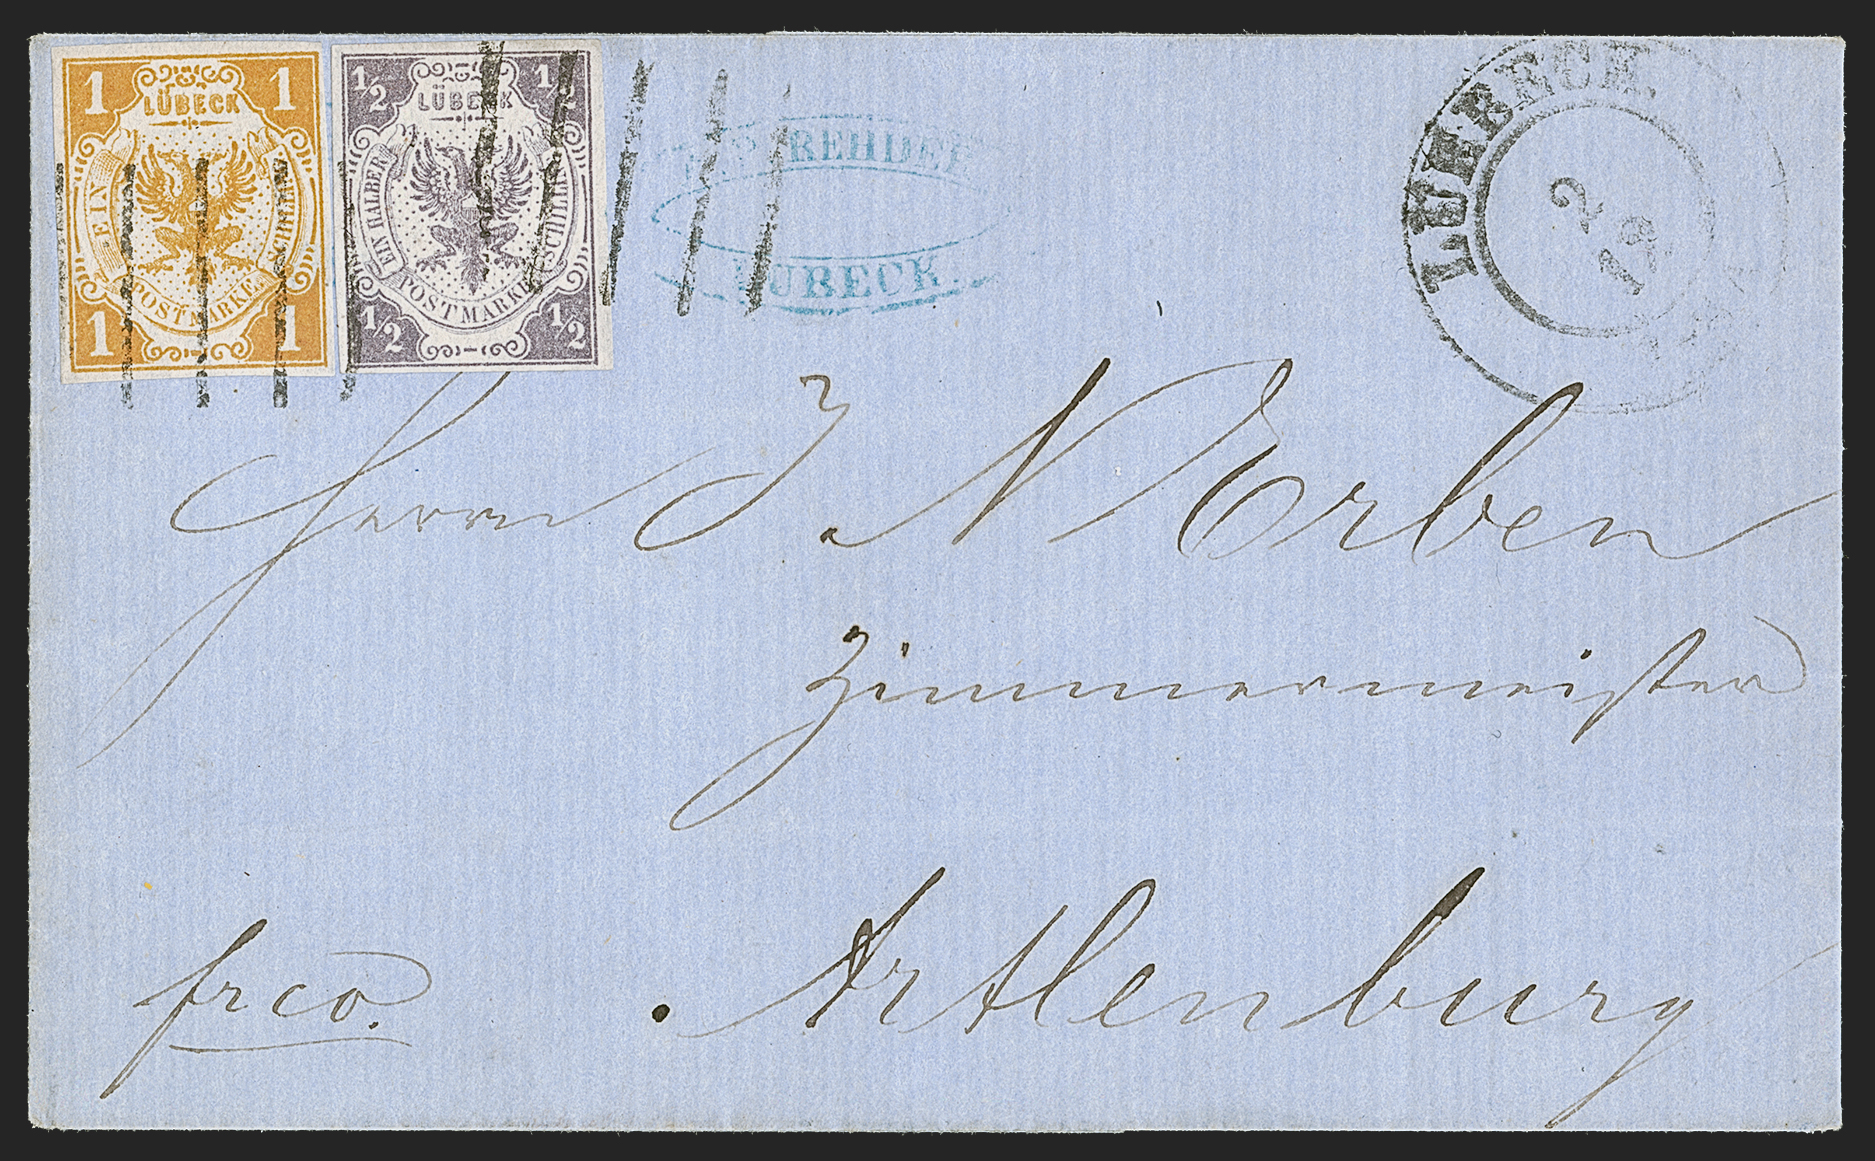 1 1
LÜBECK
EIN SCHILLING
POSTMARKE
1 1
1/2 1/2
LÜBECK
EIN HALBER SCHILLING
POSTMARKE
1/2 1/2
REHDER
LÜBECK
LUEBECK
2
12
Herrn J. N Erben
Zimmermeister
frco. Artlenburg